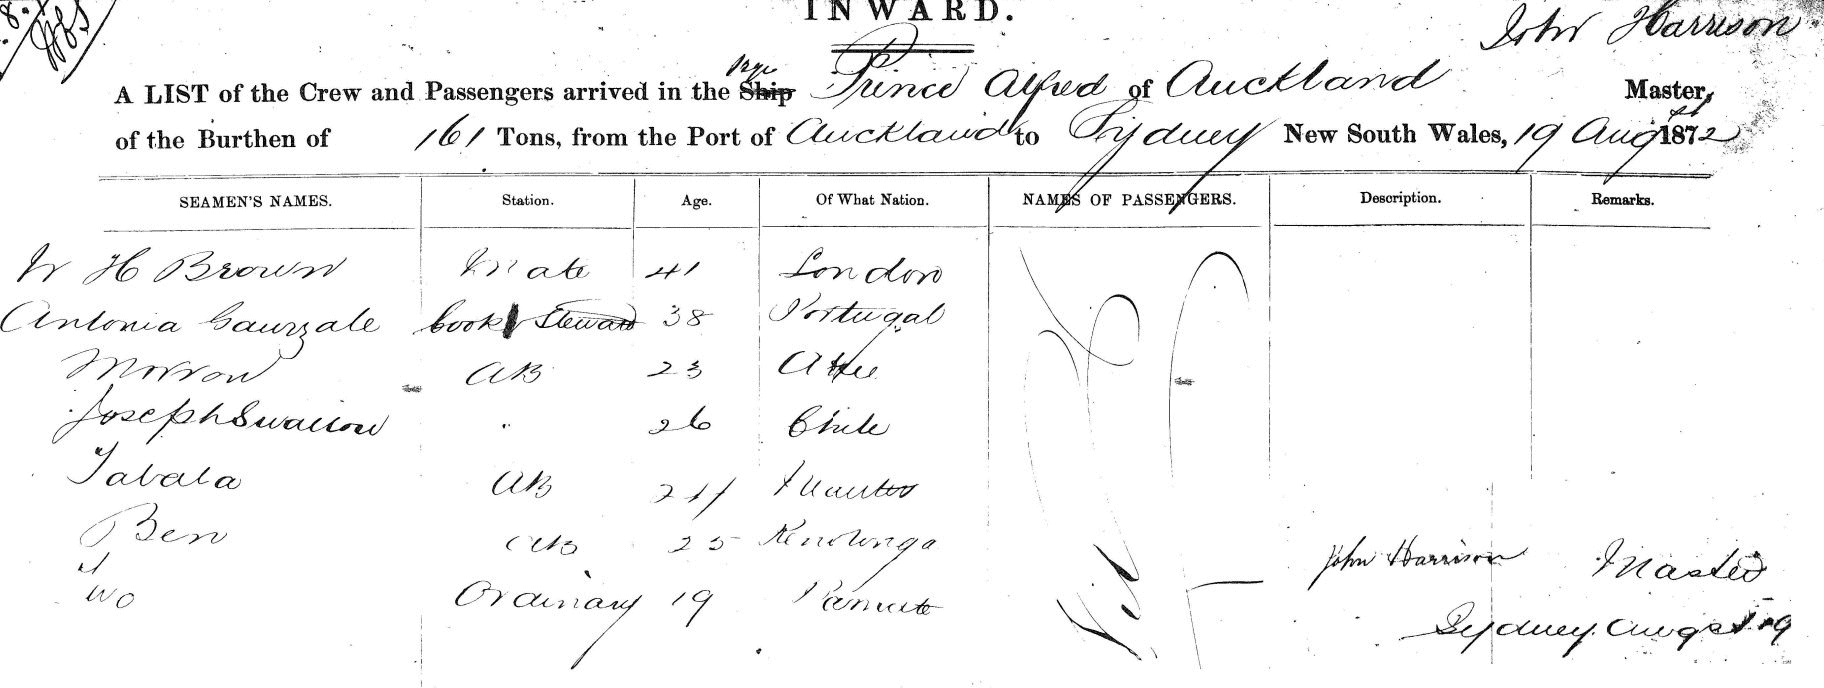 INWARD.
John Harrison
A LIST of the Crew and Passengers arrived in the Ship Prince Alfred of Auckland Master,
of the Burthen of 161 Tons, from the Port of Auckland to Sydney New South Wales, 19 Augst 1872
SEAMEN'S NAMES. Station. Age. Of What Nation. NAMES OF PASSENGERS. Description. Remarks.
W H Brown Mate 41 London
Antonia Gauzzale Cook Steward 38 Portugal
Morrow AB 23
Joseph Swallow " 26 Chile
Tabala AB
Ben AB 25
Ordinary 19
Nil
John Harrison Master
Sydney Augst 19